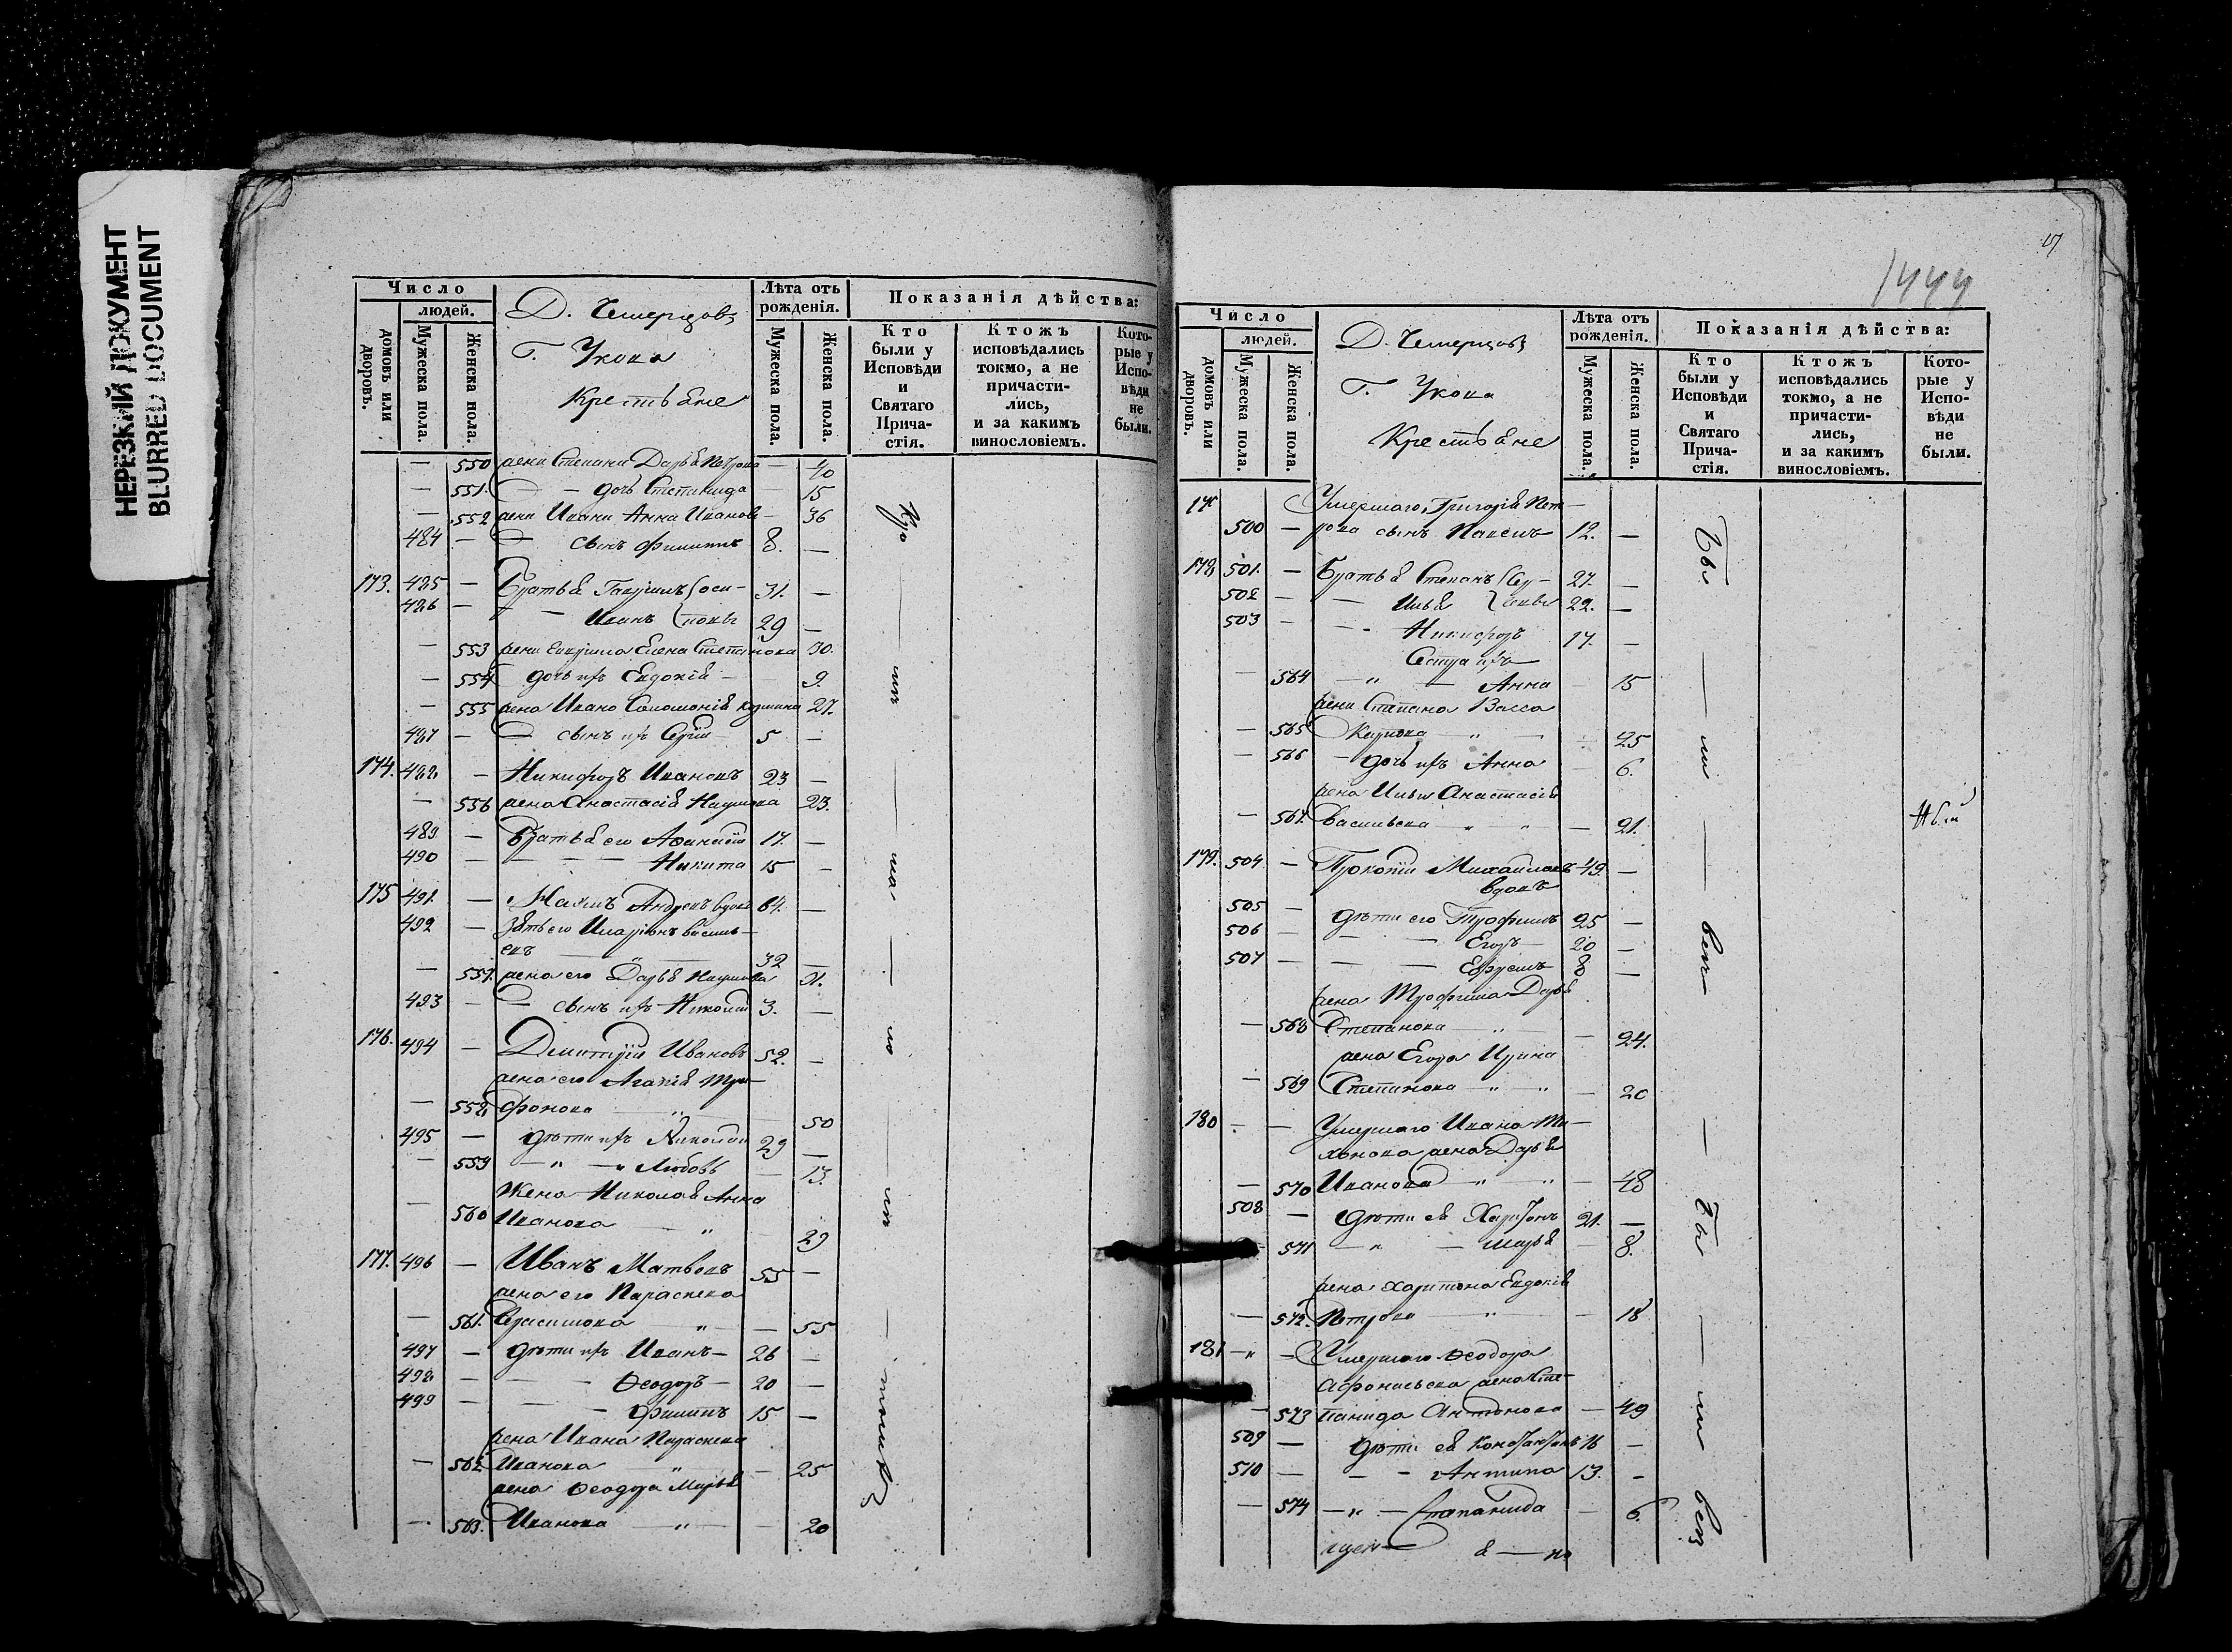 НЕРЕЗКИЙ ДОКУМЕНТ
BLURRED DOCUMENT
Число
людей.
домовъ или дворовъ.
Мужеска пола.
Женска пола.
Д. Чемерцовъ
Г. Укова
Крестьяне
Лѣта отъ рожденія.
Мужеска пола.
Женска пола.
Показанія дѣйства:
Кто были у Исповѣди и Святаго Прича-стія.
Ктожъ исповѣдались токмо, а не причасти-лись, и за какимъ винословіемъ.
Кото-рые у Испо-вѣди не были.
— 550 жена Степана Дарья Петрова — 40
— 551. — дочь Степанида — 15
— 552 жена Ивана Анна Иванова — 36
484 — — сынъ Филиппъ 8. —
173. 485 — Братья Гаврилъ Оси- 31. —
486 — — Иванъ повы 29 —
— 553 жена Гаврила Елена Степанова 30.
— 554 дочь ихъ Евдокія — 9.
— 555 жена Ивана Соломонія Козмина 27.
487 — — сынъ ихъ Сергій 5 —
174. 488 — Никифоръ Ивановъ 23 —
— 556 жена Анастасія Наумова 23.
489 — Братья его Афанасій 17. —
490 — — — — Никита 15 —
175 491. — Наумъ Андреевъ вдовъ 64. —
492 — Зять его Иларіонъ Василь-
евъ — " — 32 —
— 557. жена его Дарья Наумова 31.
493 — — сынъ ихъ Николай 3. —
176. 494 — Дмитрій Ивановъ 52. —
жена его Агафія Три-
— 558 фонова — " — 50
495 — дѣти ихъ Николай 29 —
— 559 — " — " Любовь — 13.
Жена Николая Анна
— 560 Иванова — " 29
177. 496 — Иванъ Матвеевъ 55 —
жена его Параскева
— 561. Герасимова " — 55
497 — дѣти ихъ Иванъ — 26 —
498 — — — Ѳеодоръ — 20 —
499 — — — Филиппъ 15 —
жена Ивана Параскева
— 562 Иванова " — 25
жена Ѳеодора Марья
— 563. Иванова — " — 20
17
1444
Число
людей.
домовъ или дворовъ.
Мужеска пола.
Женска пола.
Д. Чемерцовъ
Г. Укова
Крестьяне
Лѣта отъ рожденія.
Мужеска пола.
Женска пола.
Показанія дѣйства:
Кто были у Исповѣди и Святаго Прича-стія.
Ктожъ исповѣдались токмо, а не причасти-лись, и за какимъ винословіемъ.
Кото-рые у Испо-вѣди не были.
Умершаго Григорія Пет-
500 — рова сынъ Павелъ 12. —
178 501. — Братья Степанъ 27. —
502 — — Илья 22. —
503 — — — Никифоръ 17. —
Сестра ихъ
— 564 — " — Анна — 15
жена Степана Васса
— 565 Карпова " — 25
— 566 — дочь ихъ Анна — 6.
жена Ильи Анастасія
— 567. Васильева " " — 21.
179. 504. — Прокопій Михайловъ 49. —
вдовъ
505 — дѣти его Трофимъ 25 —
506 — — — Егоръ — 20 —
507 — — — Ефремъ 8 —
жена Трофима Дарья
— 568 Степанова — " — 24.
жена Егора Ирина
— 569 Степанова — " " — 20
180 — — Умершаго Ивана Ми-
хѣнова жена Дарья
— 570 Иванова " " — 48
508 — дѣти ея Харитонъ 21. —
— 571 — " — Марья — 8.
жена Харитона Евдокія
— 572. Петрова — " — 18
181 — " — Умершаго Ѳеодора
Афонасьева жена Сте-
— 573 панида Антонова — 49
509 — дѣти ея Константинъ 16 —
510 — — — Антипа 13. —
— 574 — " — Степанида — 6.